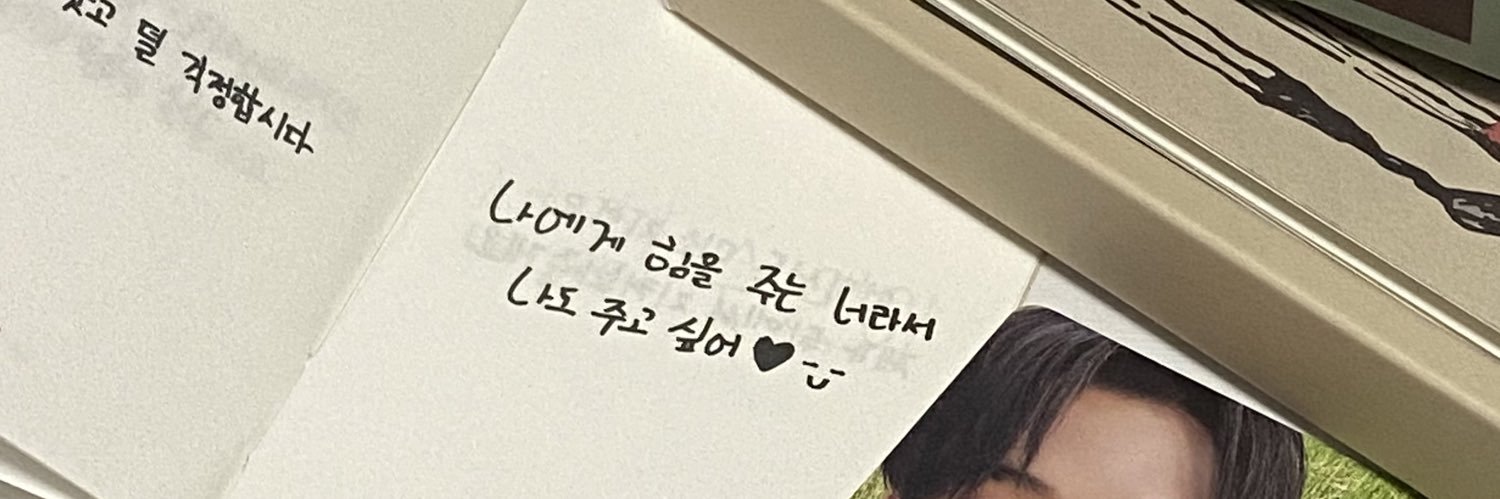 덜 걱정합시다
나에게 힘을 주는 너라서
나도 주고 싶어♥